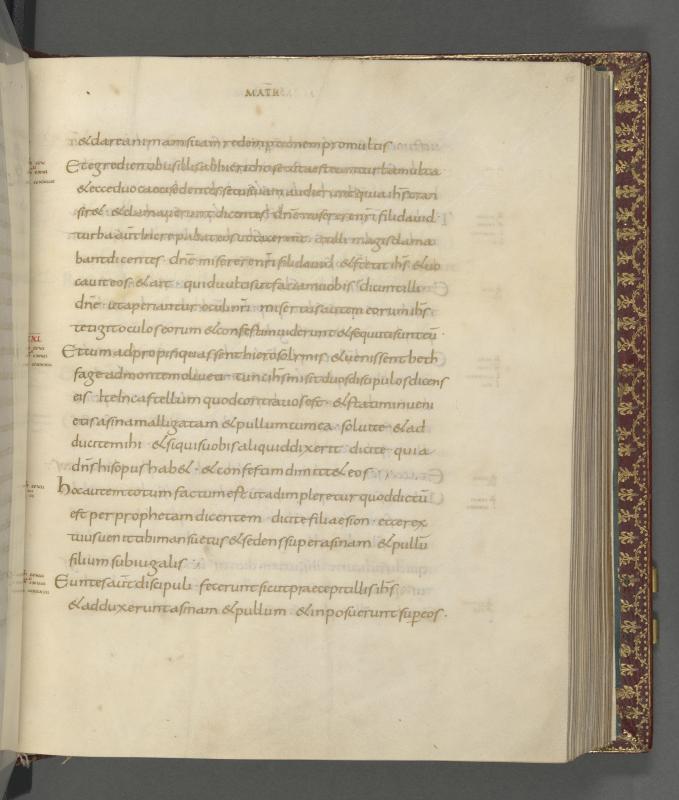 MATH
& dare animam suam redemptionem pro multis
Et egredientibus illis ab hiericho secuta est eum turba multa
& ecce duo caeci sedentes secus uiam audierunt quia ih̄s tran
sir& & clamauerunt dicentes dn̄e miserere nr̄i fili dauid
turba aūt increpabat eos ut tacerent at illi magis clama
bant dicentes dn̄e miserere nr̄i fili dauid & stetit ih̄s & uo
cauit eos & ait quid uultis ut faciam uobis dicunt illi
dn̄e ut aperiantur oculi nr̄i misertus autem eorum ih̄s
tetigit oculos eorum & confestim uiderunt & secuti sunt eū
XL
Et cum adpropinquassent hierosolymis & uenissent beth
fage ad montem oliueti tunc ih̄s misit duos discipulos dicens
eis ite in castellum quod contra uos est & statim inueni
etis asinam alligatam & pullum cum ea soluite & ad
ducite mihi & si quis uobis aliquid dixerit dicite quia
dn̄s his opus hab& & confestim dimitt& eos
hoc autem totum factum est ut adimpleretur quod dictū
est per prophetam dicentem dicite filiae sion ecce rex
tuus uenit tibi mansuetus & sedens super asinam & pullū
filium subiugalis
Euntes aūt discipuli fecerunt sicut praecepit illis ih̄s
& adduxerunt asinam & pullum & inposuerunt sup̄ eos